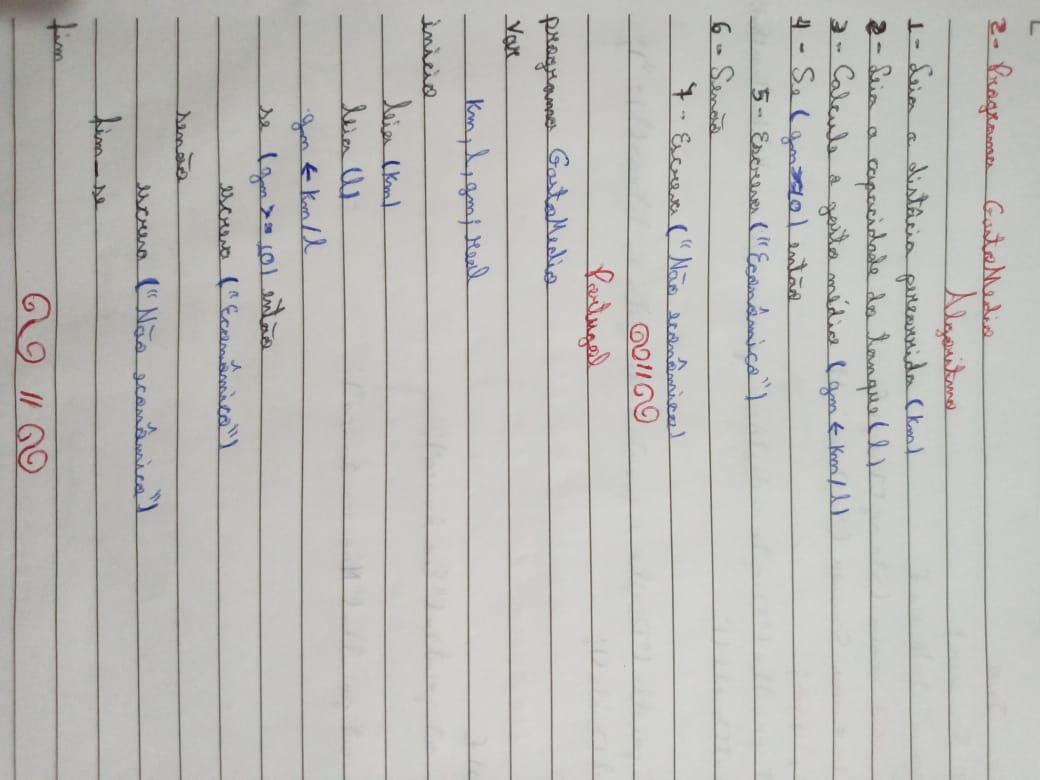 2- Programa GastoMedio
Algoritmo
1- Leia a distácia precorrida (km)
2- Leia a capacidade do tanque (l)
3- Calcule o gasto médio (gm ← km/l)
4- Se (gm >= 10) então
5- Escreva ("Econômico")
6- Senão
7- Escreva ("Não econômico)
Portugol
programa GastoMedio
Var
km, l, gm; real
inicio
leia (km)
leia (l)
gm ← km/l
se (gm >= 10) então
escreva ("Econômico")
senão
escreva ("Não econômico")
fim-se
fim